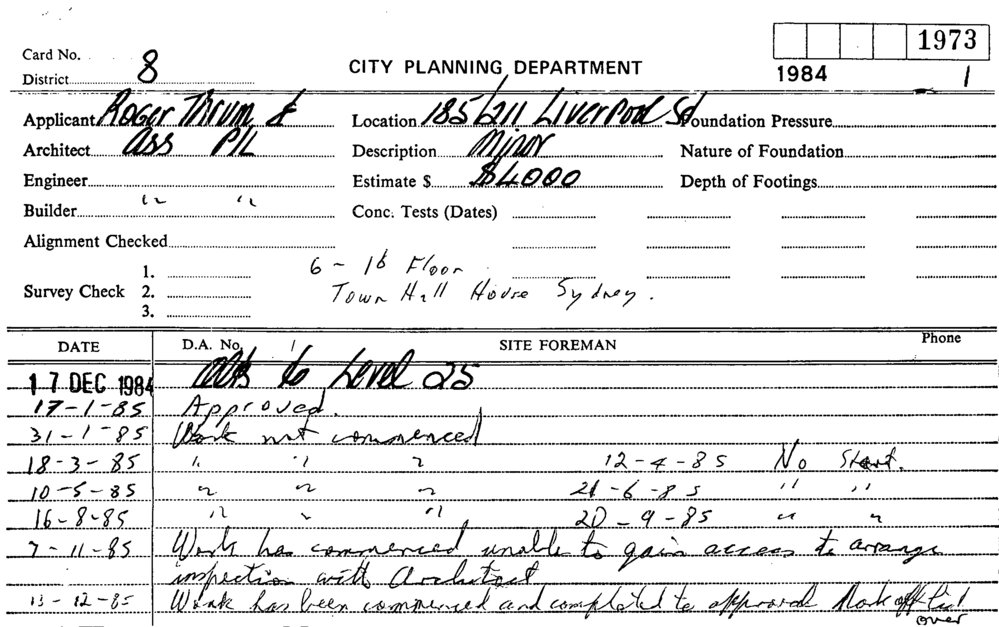 1973
Card No. 8 CITY PLANNING DEPARTMENT 1984 1
District
Applicant Roger Thrum & Location 185/211 Liverpool St Foundation Pressure
Architect Ass P/L Description Minor Nature of Foundation
Engineer Estimate $ $4000 Depth of Footings
Builder " " Conc. Tests (Dates)
Alignment Checked
1. 6 - 16 Floor
Survey Check 2. Town Hall House Sydney.
3.
DATE D.A. No. SITE FOREMAN Phone
17 DEC 1984 Alts to Level 25
17-1-85 Approved.
31-1-85 Work not commenced
18-3-85 " " " 12-4-85 No Start.
10-5-85 " " " 21-6-85 " "
16-8-85 " " " 20-9-85 " "
7-11-85 Work has commenced unable to gain access to arrange
inspection with Architect
13-12-85 Work has been commenced and completed to approval Mark off list
over